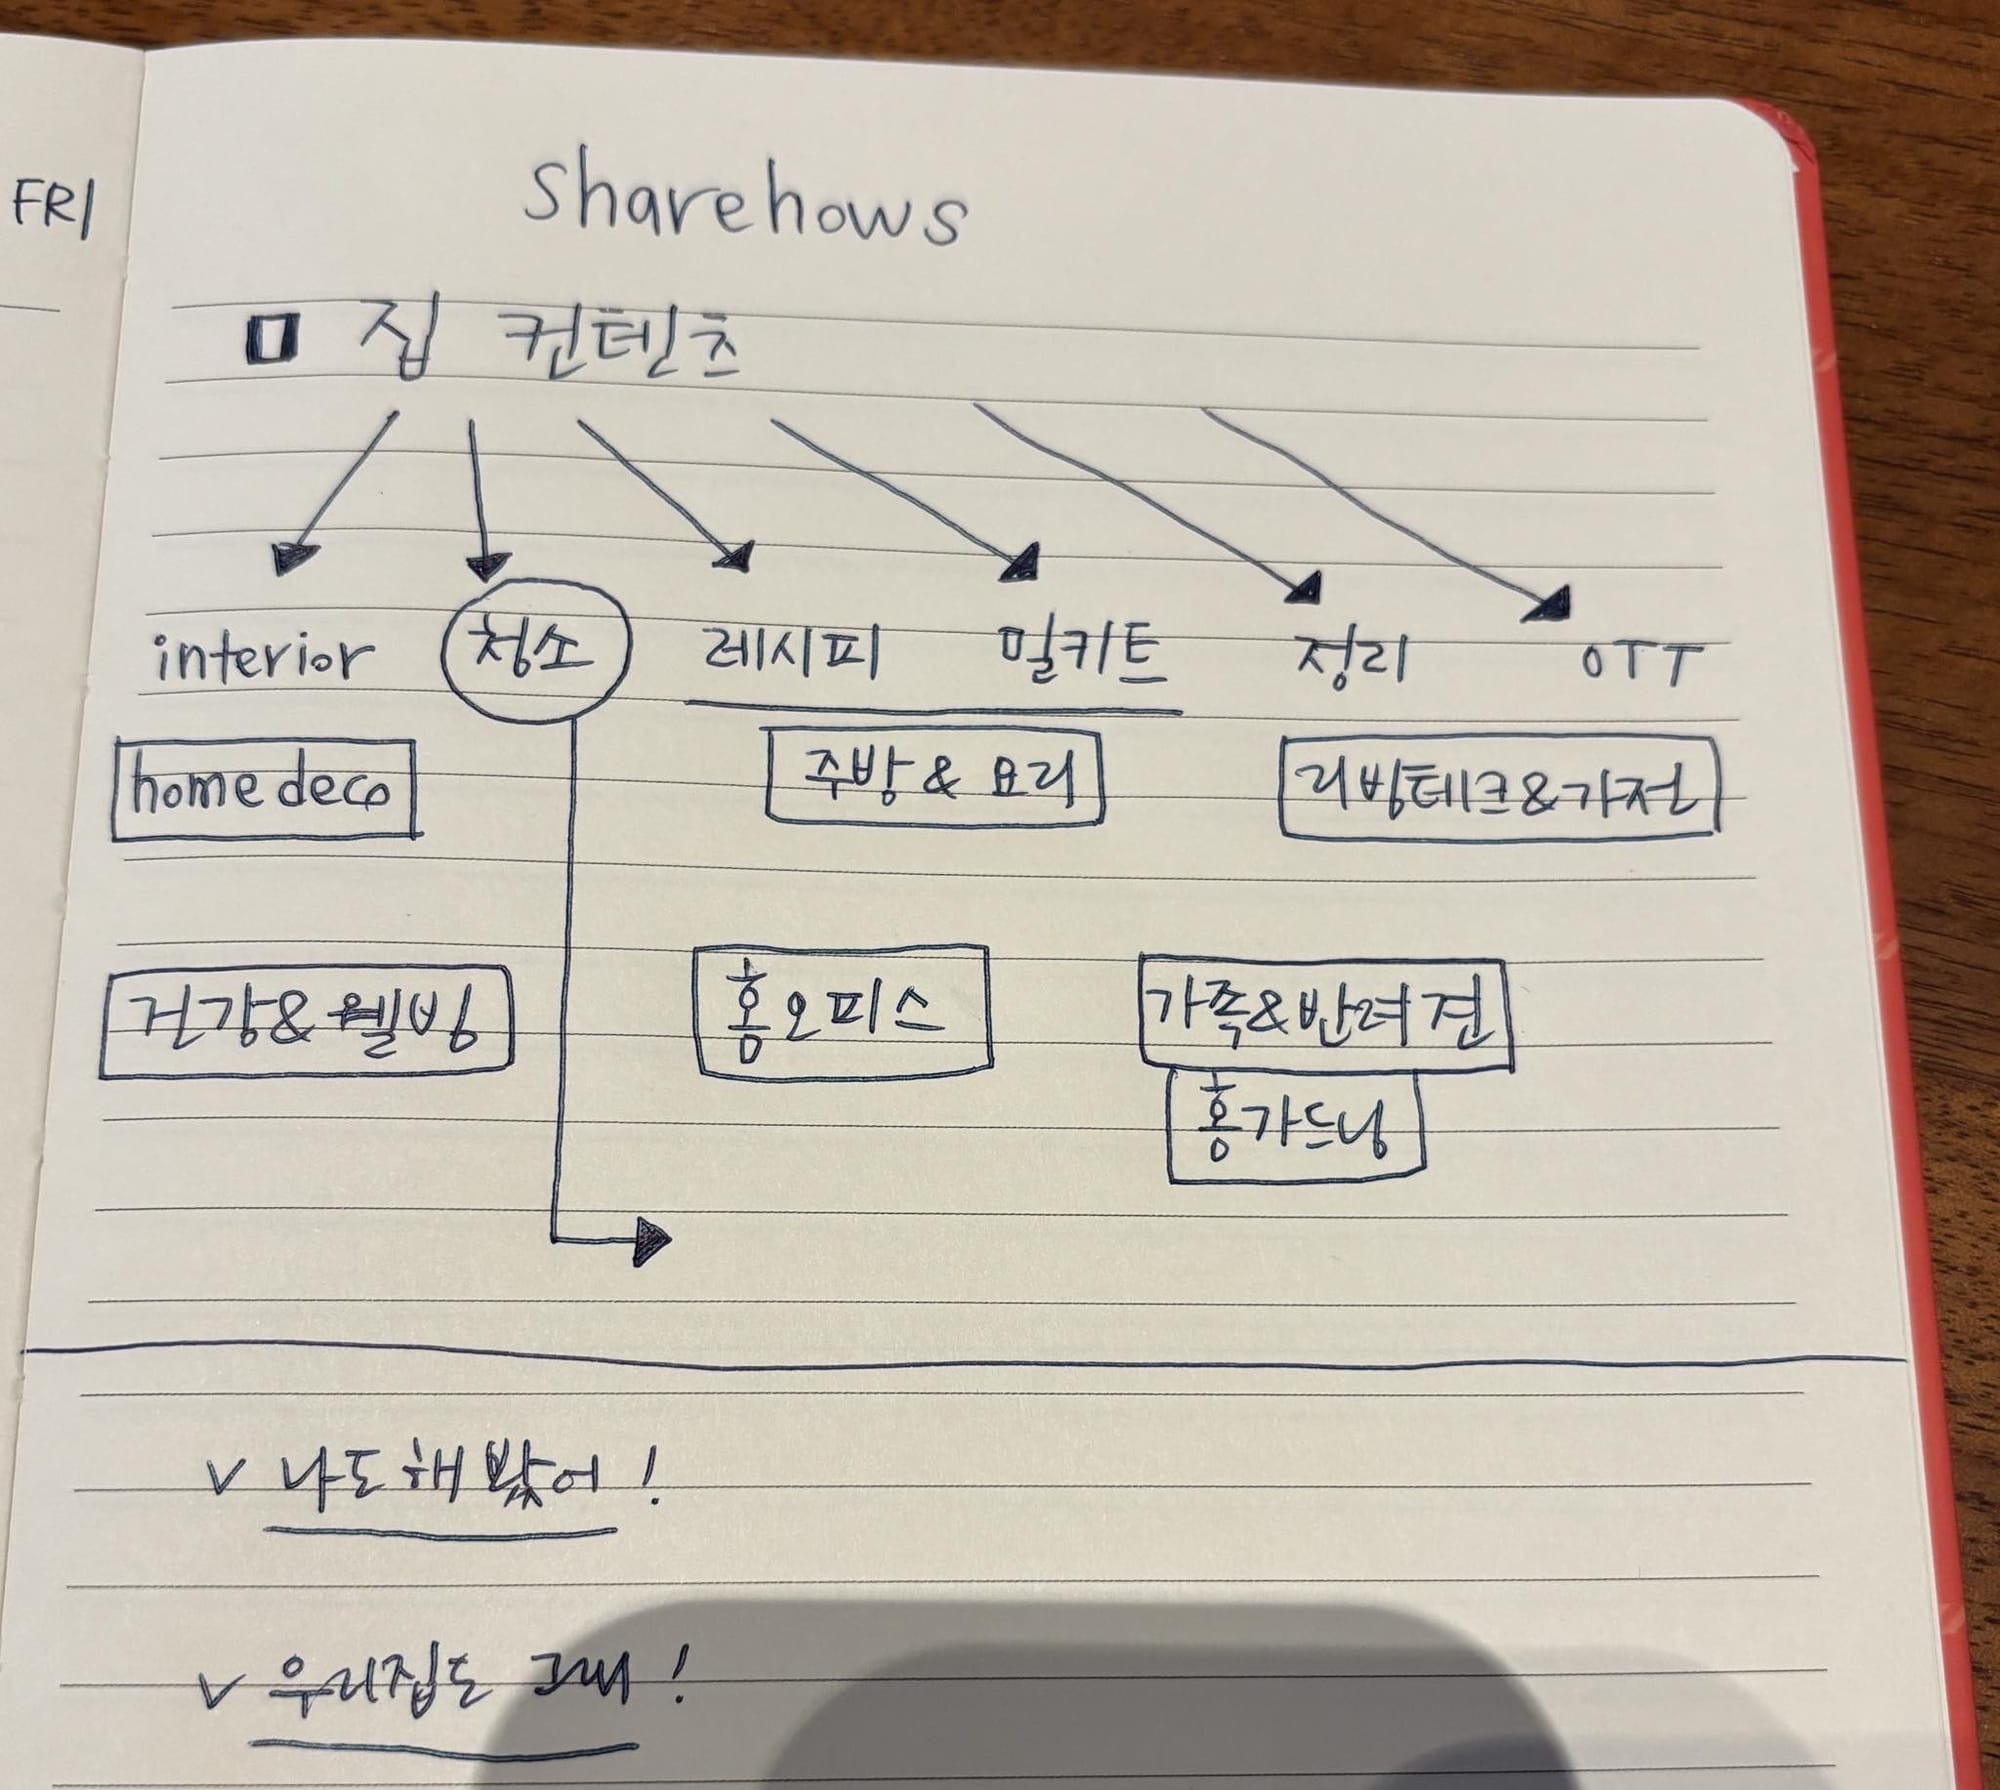 FRI
sharehows
집 컨텐츠
interior 청소 레시피 밀키트 정리 OTT
home deco 주방 & 요리 리빙테크&가전
건강&웰빙 홈오피스 가족&반려견
홈가드닝
v 나도 해봤어!
v 우리집도 그래!